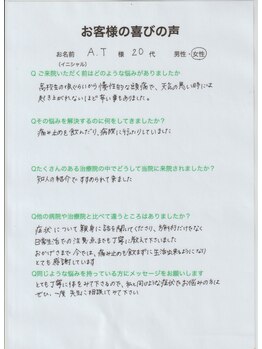 お客様の喜びの声
お名前 A.T 様 20代 男性・女性
(イニシャル)
Q ご来院いただく前はどのような悩みがありましたか
高校生の頃ぐらいから慢性的な頭痛で、天気の悪い時には
起き上がれないほど辛い事もありました。
Qその悩みを解決するのに何をしてきましたか
痛み止めを飲んだり、病院に行ったりしていました
Qたくさんのある治療院の中でどうして当院に来院されましたか
知人の紹介ですすめられて来ました
Q他の病院や治療院と比べて違うところはありましたか
症状について親身に話を聞いてくださり、方針だけでなく
日常生活での注意点までも丁寧に教えて下さいました
おかげさまで今では、痛み止めも飲まずに生活出来るようになり
とても感謝しています
Q同じような悩みを持っている方にメッセージをお願いします
とても丁寧に体をみて下さるので、私と同じような症状でお悩みの方は
ぜひ、一度先生に相談してみて下さい